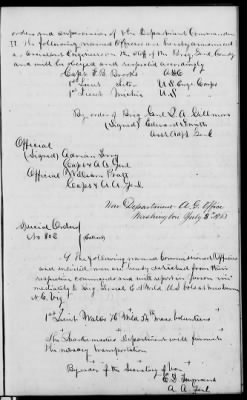 orders and supervision of the Department Commander
II The following named Officers are hereby announced
as Assistant Engineers on the Staff of the Brig Genl Comdg
and will be obeyed and respected accordingly
Capt T. B. Brooks A D C
1st Lieut Suter U.S. Engr Corps
1st Lieut Michie U.S. " "
By order of Brig Genl Q A Gillmore
(Signed) Edward Smith
Asst Adjt Genl
Official
(Signed)
Capt & A A Genl
Official William Pratt
Capt & A A Genl
War Department A. G. Office
Washington July 8th 1863
Special Orders
No 302 (Extract)
4 The following named Commissioned Officers
and enlisted men are hereby detached from their
respective commands and will report in person imme
diately to Brig General E A Wild U S Vols at Newbern
N. C. viz
1st Lieut Walter H Wild 54th Mass Volunteers
The Quartermasters Department will furnish
the necessary transportation
By order of the Secretary of War
E. D. Townsend
A A Genl